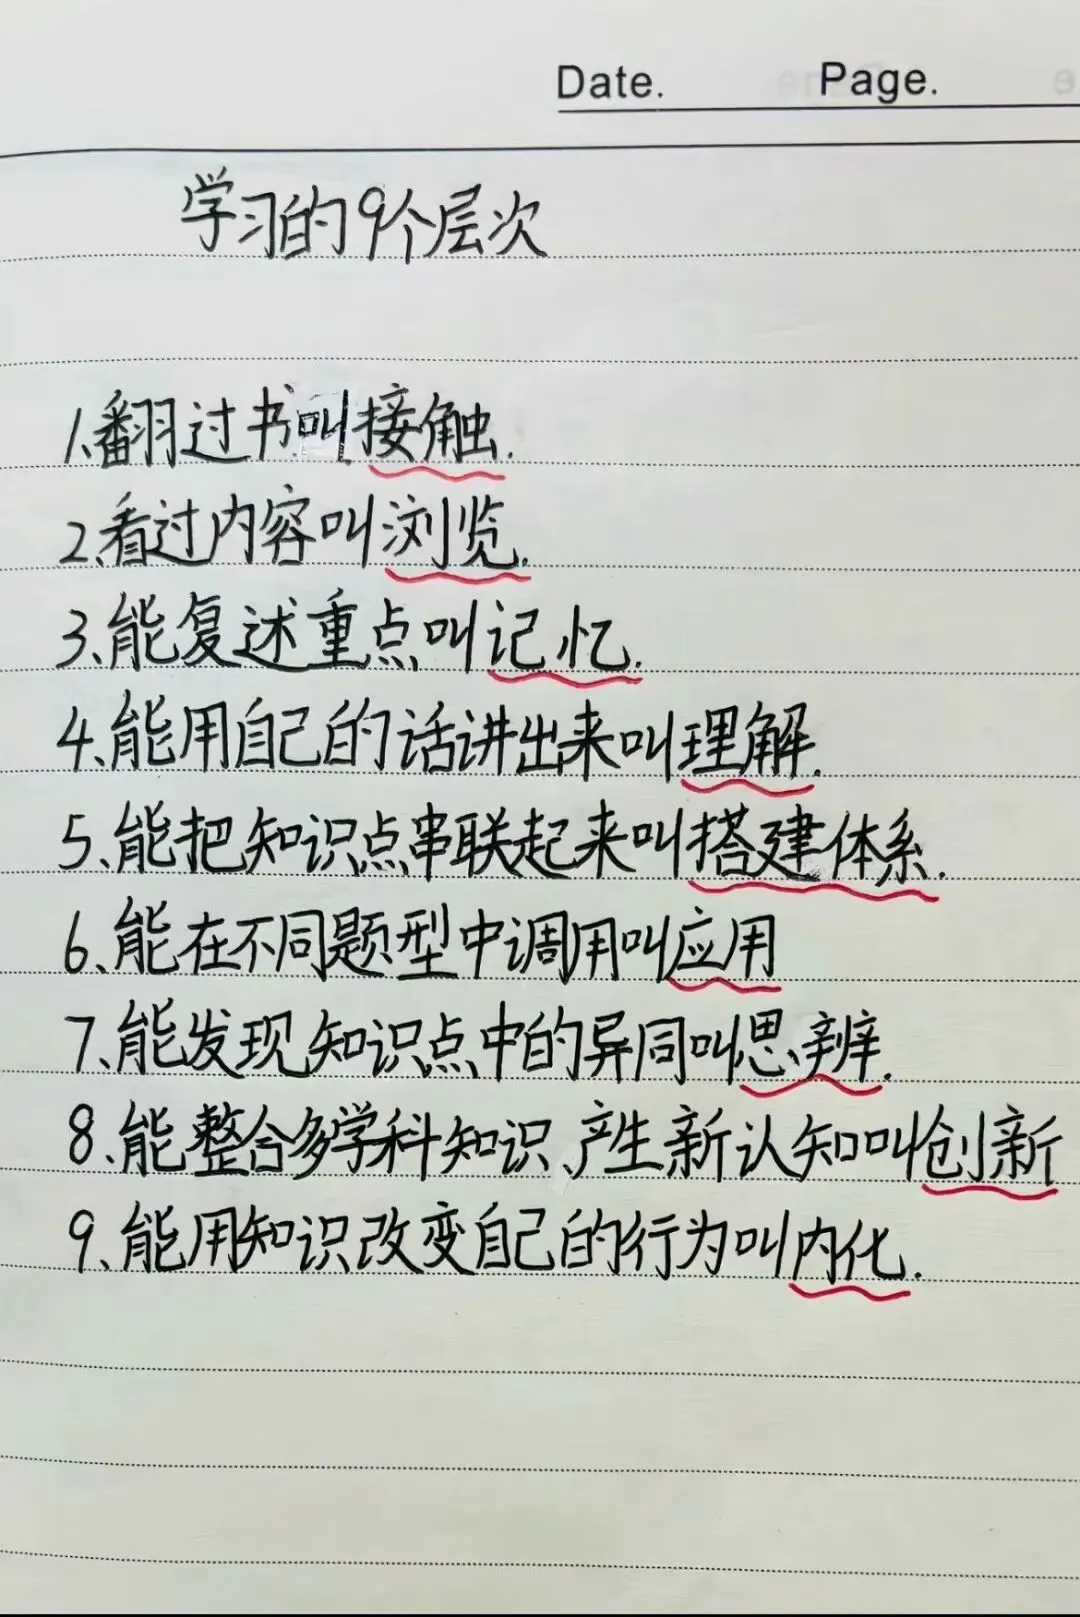 Date. Page.
学习的9个层次
1、翻过书叫接触.
2、看过内容叫浏览.
3、能复述重点叫记忆.
4、能用自己的话讲出来叫理解.
5、能把知识点串联起来叫搭建体系.
6、能在不同题型中调用叫应用
7、能发现知识点中的异同叫思辨.
8、能整合多学科知识、产生新认知叫创新
9、能用知识改变自己的行为叫内化.